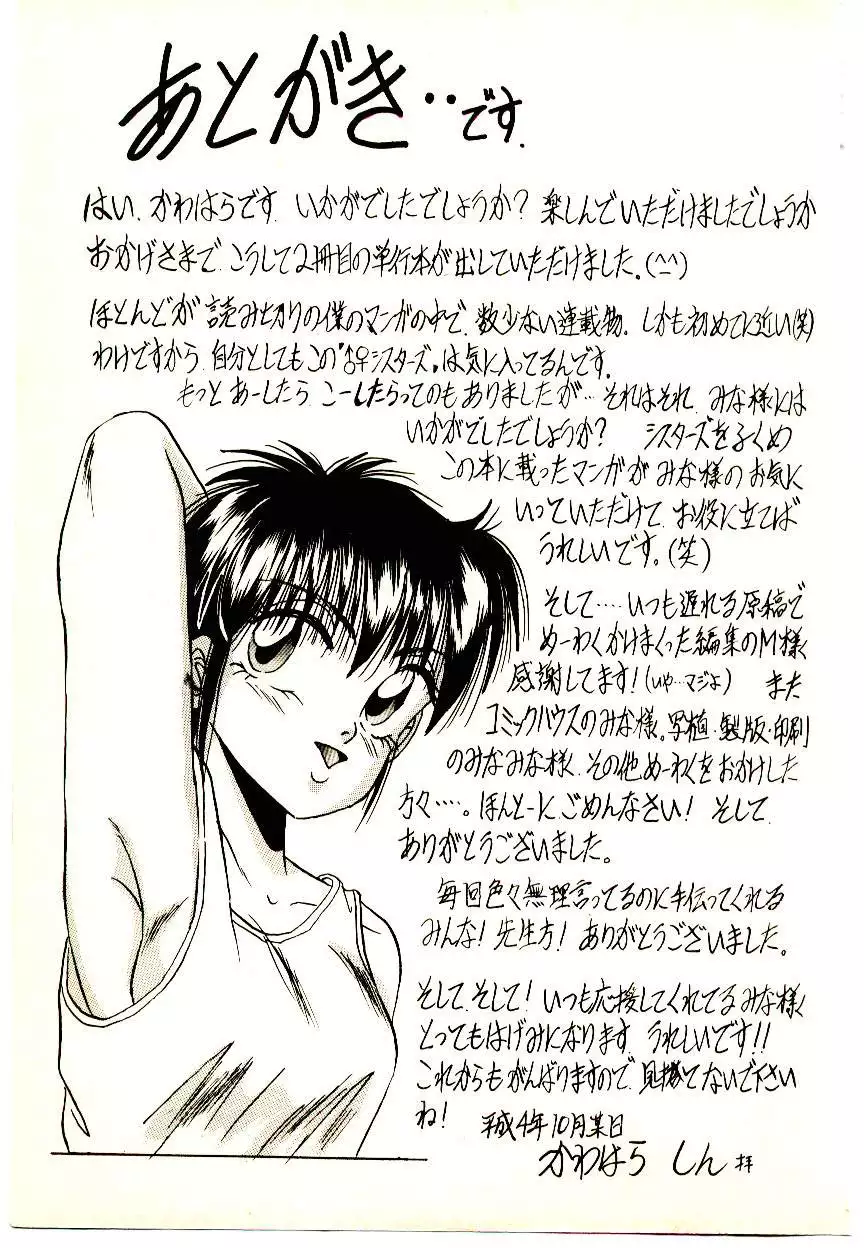 あとがき・・です.
はい、かわはらです いかがでしたでしょうか？ 楽しんでいただけましたでしょうか
おかげさまで、こうして2冊目の単行本が出していただけました。(^^)
ほとんどが 読み切りの僕のマンガの中で、数少ない連載物、しかも初めてに近い(笑)
わけですから、自分としてもこの"♂♀シスターズ"は気に入ってるんです.
もっと あーしたら、こーしたらってのもありましたが… それはそれ、みな様には
いかがでしたでしょうか？ シスターズをふくめ
この本に載ったマンガが みな様の お気に
いっていただけて、お役に立てば
うれしいです。(笑)
そして‥‥いつも遅れる原稿で
めーわくかけまくった編集のM様
感謝してます！(いや…マジよ) また
コミックハウスのみな様。写植・製版・印刷
のみなみな様、その他めーわくをおかけした
方々‥‥。ほんとーに ごめんなさい！ そして
ありがとうございました。
毎回色々無理言ってるのに手伝ってくれる
みんな！先生方！ ありがとうございました。
そして、そして！いつも応援してくれてるみな様
とってもはげみになります うれしいです！！
これからも がんばりますので、見捨てないで下さい
ね！
平成4年10月某日
かわはら しん 拝